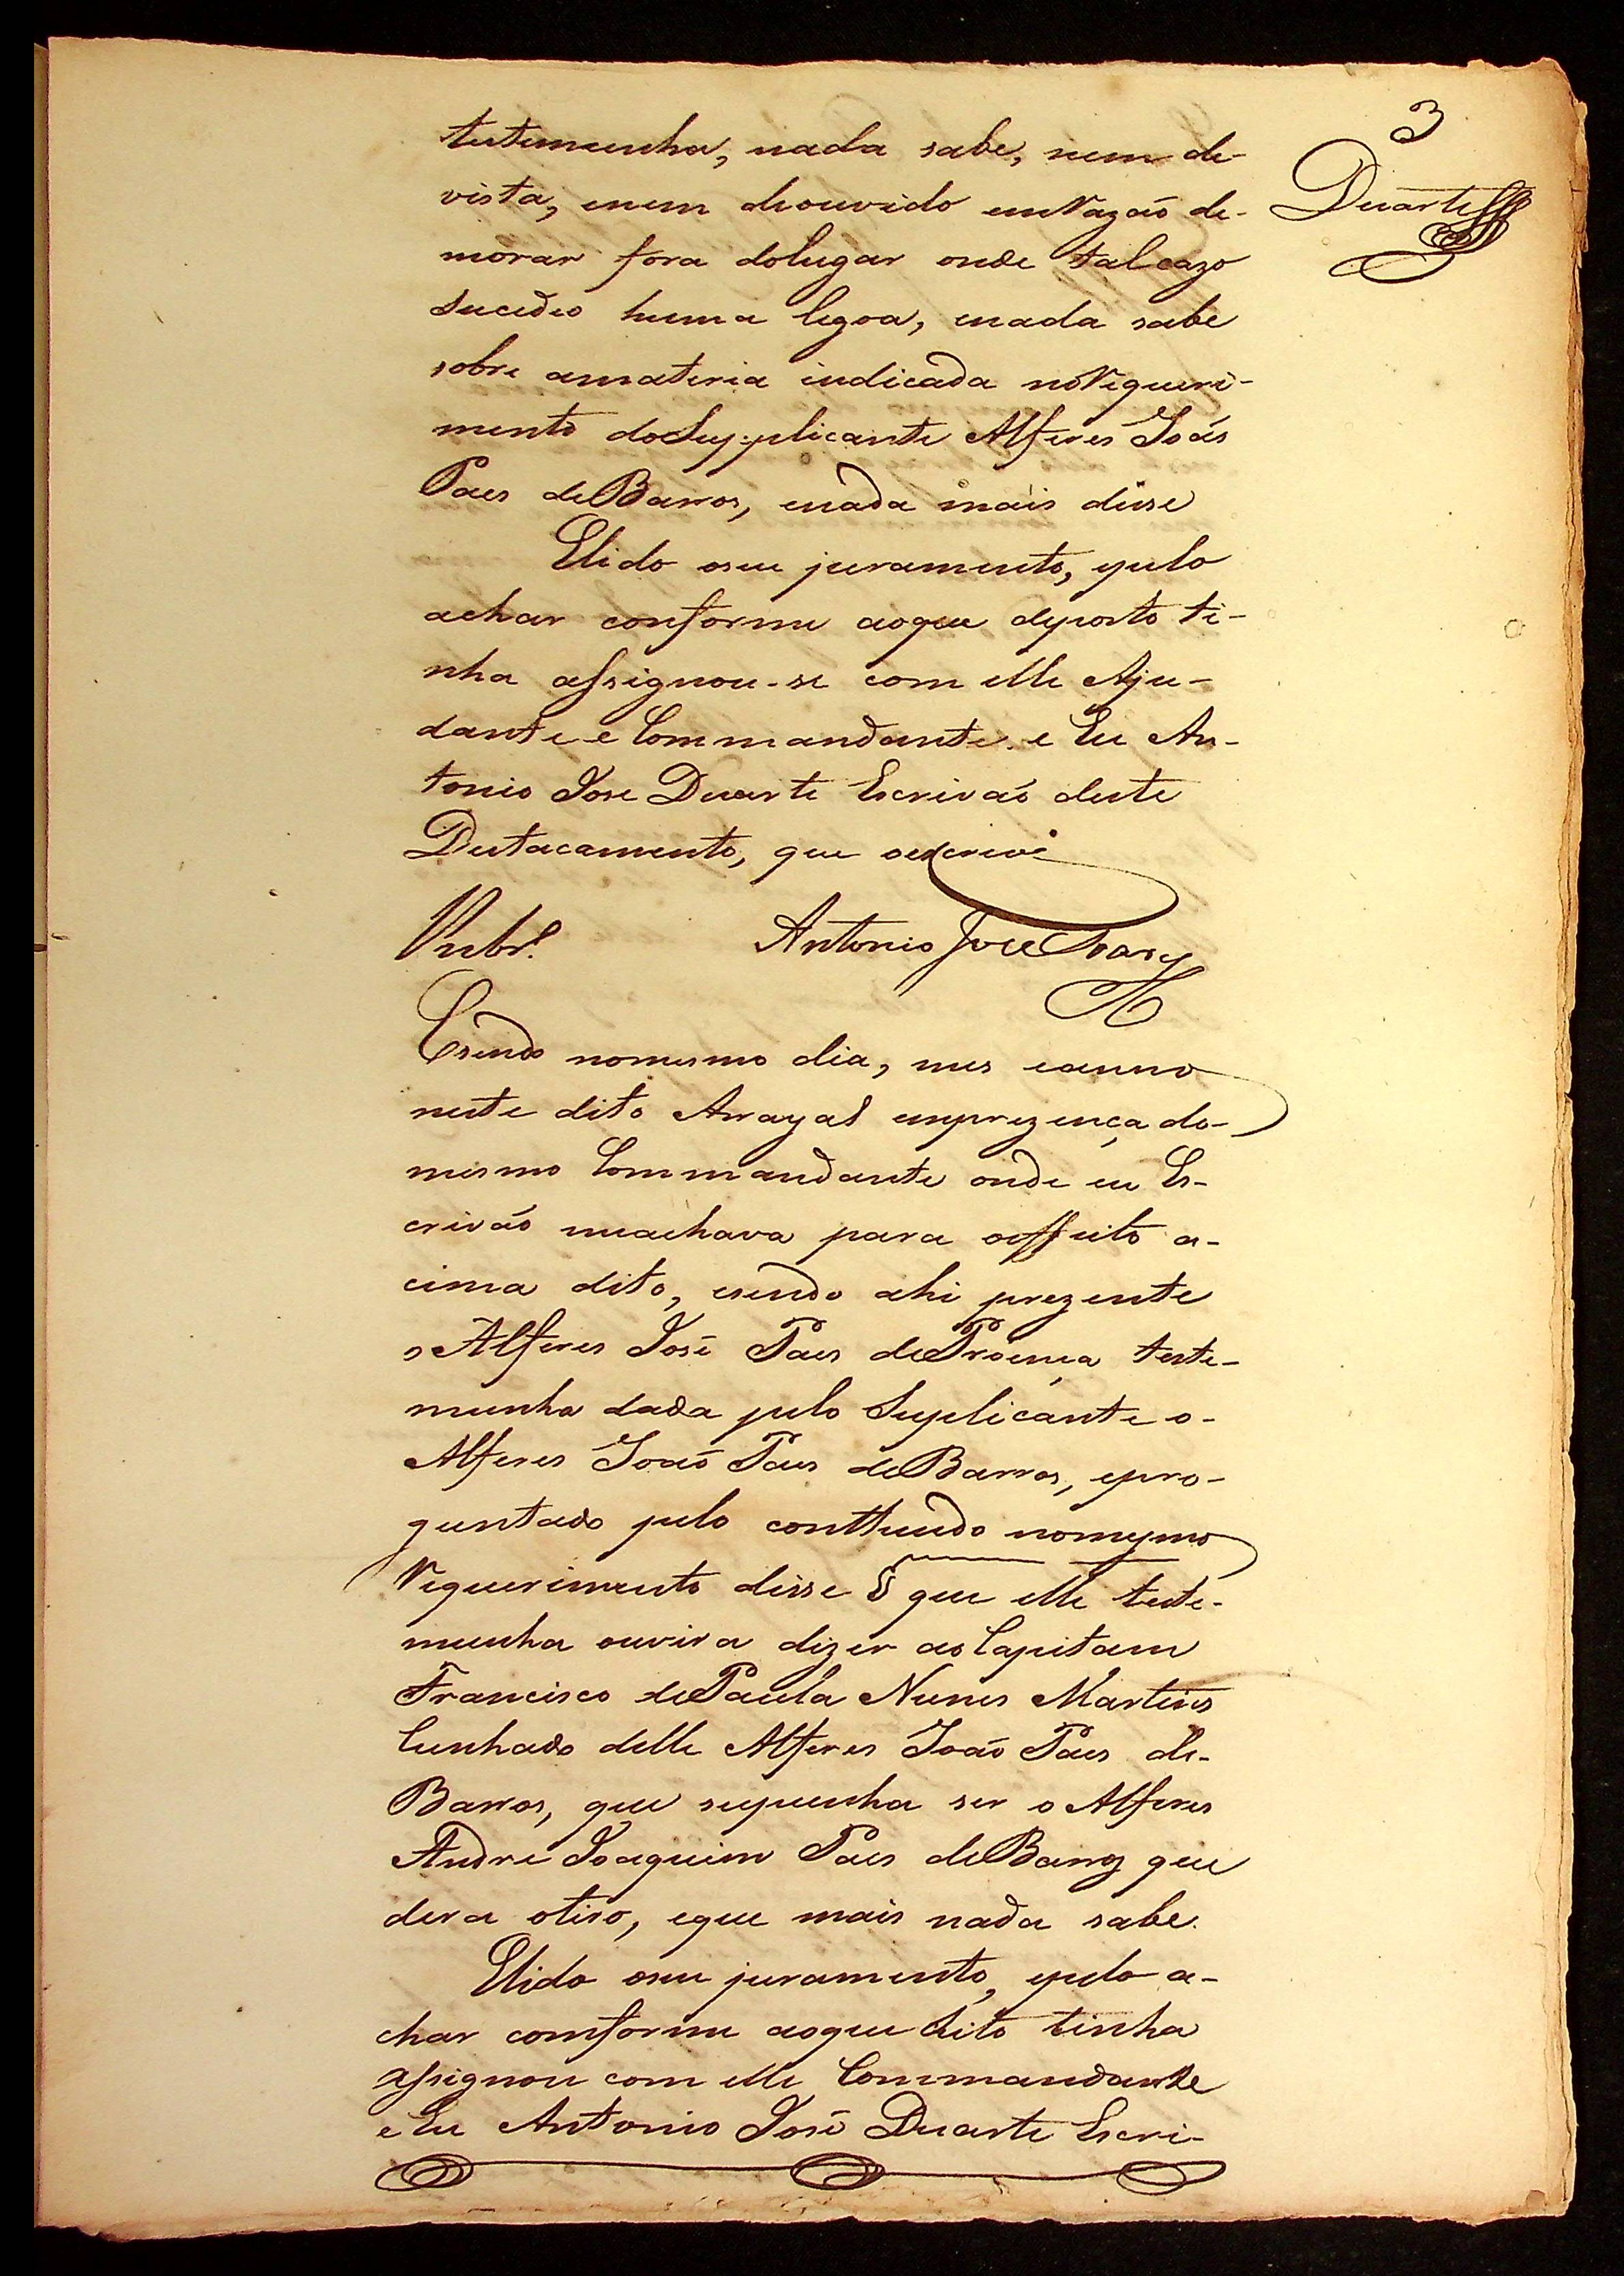 3
Duarte
testemunha, nada sabe, nem de-
vista, enem deouvido emrazaõ de-
morar fora dolugar onde tal cazo
sucedeo huma legoa, enada sabe
sobre amateria indicada noRequeri-
mento doSupplicante Alferes Joaõ
Paes deBarros, enada mais disse
Elido oseu juramento, epelo
achar conforme aoque deposto ti-
nha assignou-se com elle Aju-
dante e Commandante e Eu An-
tonio Jose Duarte Escrivaõ deste
Destacamento, que oescrevi
Antonio Joze
Esendo nomesmo dia, mes eanno
neste dito Arrayal emprezença do-
mesmo Commandante onde eu Es-
crivaõ meachava para oeffeito a-
cima dito, esendo ahi prezente
o Alferes José Paes deProença teste-
munha dada pelo Suplicante o-
Alferes Joaõ Paes deBarros, epro-
guntado pelo conttheudo nomesmo
Requerimento disse § que elle teste-
munha ouvira dizer aoCapitam
Francisco dePaula Nunes Martins
Cunhado delle Alferes Joaõ Paes de-
Barros, que supunha ser o Alferes
Andre Joaquim Paes deBarros que
dera otiro, eque mais nada sabe.
Elido oseu juramento, epelo a-
char comforme aoque dito tinha
assignou com elle Commandante
e Eu Antonio José Duarte Escri-